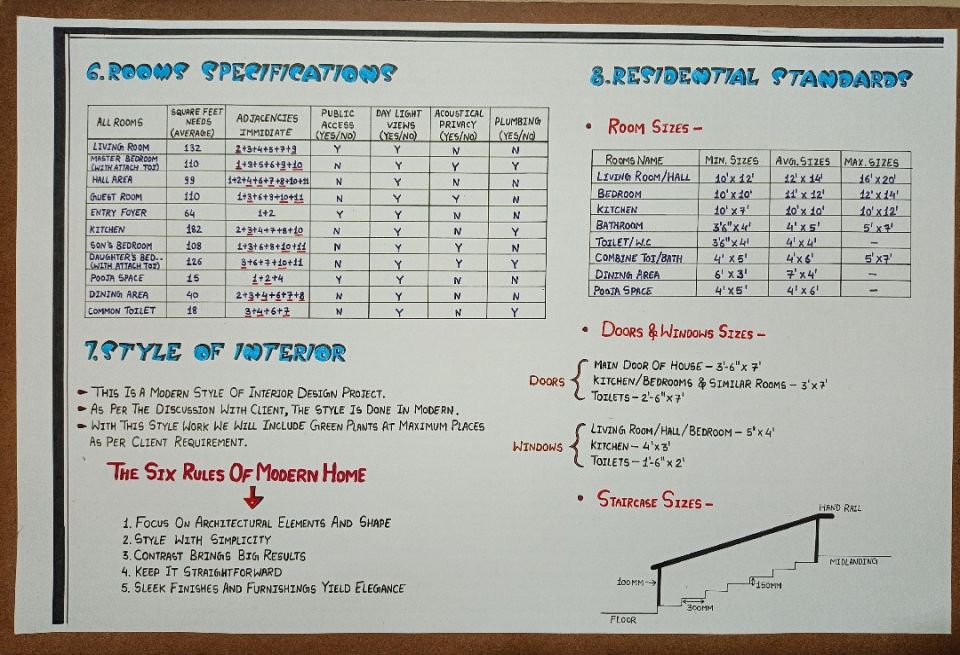 6. ROOMS SPECIFICATIONS
ALL ROOMS | SQUARE FEET NEEDS (AVERAGE) | ADJACENCIES IMMIDIATE | PUBLIC ACCESS (YES/NO) | DAY LIGHT VIEWS (YES/NO) | ACOUSTICAL PRIVACY (YES/NO) | PLUMBING (YES/NO)
LIVING ROOM | 132 | 2+3+4+5+7+9 | Y | Y | N | N
MASTER BEDROOM (WITH ATTACH TOI) | 110 | 1+3+5+6+9+10 | N | Y | Y | Y
HALL AREA | 99 | 1+2+4+6+7+8+10+11 | N | Y | N | N
GUEST ROOM | 110 | 1+3+6+9+10+11 | N | Y | Y | N
ENTRY FOYER | 64 | 1+2 | Y | Y | N | N
KITCHEN | 182 | 2+3+4+7+8+10 | N | Y | N | Y
SON'S BEDROOM | 108 | 1+3+6+8+10+11 | N | Y | Y | N
DAUGHTER'S BED-- (WITH ATTACH TOI) | 126 | 3+6+7+10+11 | N | Y | Y | Y
POOJA SPACE | 15 | 1+2+4 | Y | Y | N | N
DINING AREA | 40 | 2+3+4+6+7+8 | N | Y | N | N
COMMON TOILET | 18 | 3+4+6+7 | N | Y | N | Y
7. STYLE OF INTERIOR
THIS IS A MODERN STYLE OF INTERIOR DESIGN PROJECT.
AS PER THE DISCUSSION WITH CLIENT, THE STYLE IS DONE IN MODERN.
WITH THIS STYLE WORK WE WILL INCLUDE GREEN PLANTS AT MAXIMUM PLACES
AS PER CLIENT REQUIREMENT.
THE SIX RULES OF MODERN HOME
1. FOCUS ON ARCHITECTURAL ELEMENTS AND SHAPE
2. STYLE WITH SIMPLICITY
3. CONTRAST BRINGS BIG RESULTS
4. KEEP IT STRAIGHTFORWARD
5. SLEEK FINISHES AND FURNISHINGS YIELD ELEGANCE
8. RESIDENTIAL STANDARDS
• ROOM SIZES –
ROOMS NAME | MIN. SIZES | AVG. SIZES | MAX. SIZES
LIVING ROOM/HALL | 10' X 12' | 12' X 14' | 16' X 20'
BEDROOM | 10' X 10' | 11' X 12' | 12' X 14'
KITCHEN | 10' X 7' | 10' X 10' | 10' X 12'
BATHROOM | 3'6" X 4' | 4' X 5' | 5' X 7'
TOILET/W.C | 3'6" X 4' | 4' X 4' | –
COMBINE TOI/BATH | 4' X 5' | 4' X 6' | 5' X 7'
DINING AREA | 6' X 3' | 7' X 4' | –
POOJA SPACE | 4' X 5' | 4' X 6' | –
• DOORS & WINDOWS SIZES –
DOORS
MAIN DOOR OF HOUSE – 3'-6" X 7'
KITCHEN/BEDROOMS & SIMILAR ROOMS – 3' X 7'
TOILETS – 2'-6" X 7'
WINDOWS
LIVING ROOM/HALL/BEDROOM – 5' X 4'
KITCHEN – 4' X 3'
TOILETS – 1'-6" X 2'
• STAIRCASE SIZES –
HAND RAIL
MIDLANDING
100MM
150MM
300MM
FLOOR